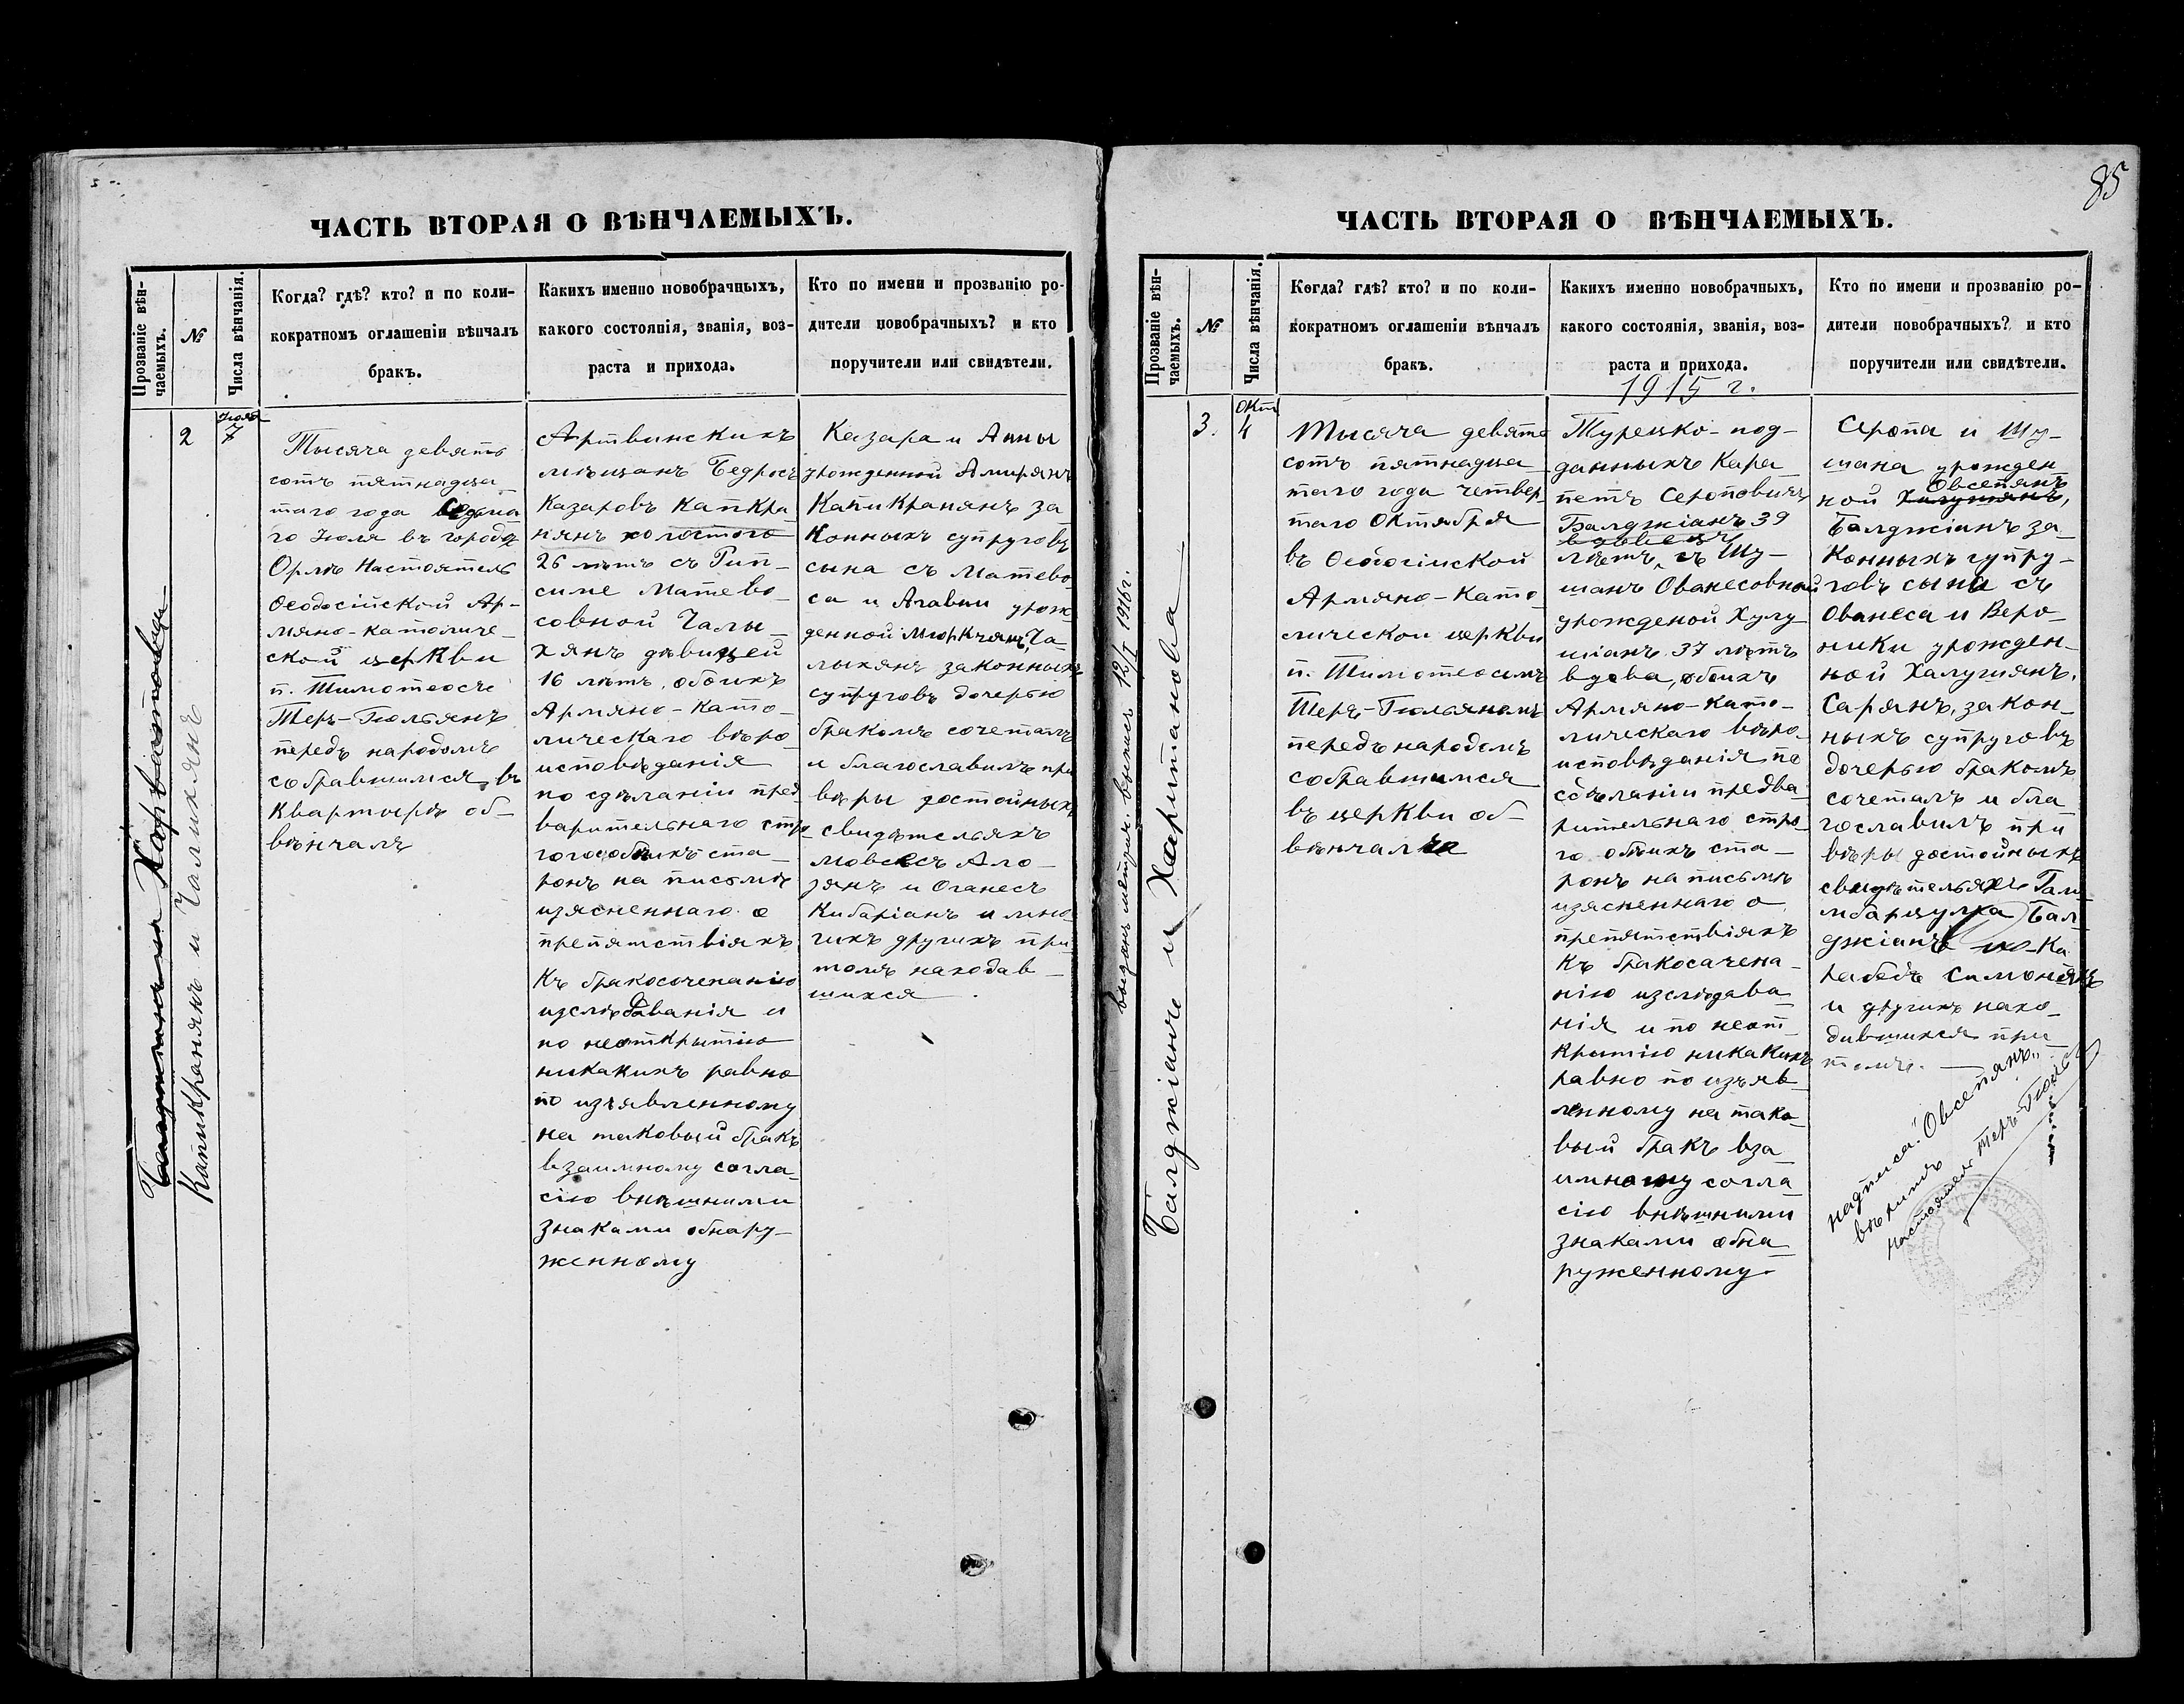 85
ЧАСТЬ ВТОРАЯ О ВѢНЧАЕМЫХЪ.
Прозваніе вѣн-
чаемыхъ.
№
Числа вѣнчанія.
Когда? гдѣ? кто? и по коли-
кократномъ оглашеніи вѣнчалъ
бракъ.
Какихъ именно новобрачныхъ,
какого состоянія, званія, воз-
раста и прихода.
Кто по имени и прозванію ро-
дители новобрачныхъ? и кто
поручители или свидѣтели.
Капикранянъ и Чалыхянъ
2
Іюля
7
Тысяча девять
сотъ пятнадца
таго года Седьма
го Іюля въ городѣ
Орлѣ Настоятель
Ѳеодосійской Ар-
мяно-католиче-
ской церкви
п. Тимотеосъ
Теръ-Гюльянъ
передъ народомъ
собравшимся въ
квартирѣ об-
вѣнчалъ
Артвинскихъ
мѣщанъ Бедросъ
Казаровъ Капкра
нянъ холостого
26 лѣтъ съ Рип-
симе Матево
совной Чалы
хянъ дѣвицей
16 лѣтъ, обоихъ
Армяно-Като-
лическаго вѣро
исповѣданія
по сдѣланіи пред
варительнаго стро
гого обоихъ ста
ронъ на письмѣ
изясненнаго о
препятствіяхъ
къ бракосочетанію
изслѣдованія и
по неоткрытію
никакихъ равно
по изъявленному
на таковый бракъ
взаимному согла
сію внѣшними
знаками обнару-
женному
Казара и Анны
урожденной Амирянъ
Капикранянъ за
конныхъ супруговъ
сына съ Матево
са и Агавни урож
денной Мюркчянъ, Ча-
лыхянъ законныхъ
супруговъ дочерью
бракомъ сочеталъ
и благославилъ при
вѣры достойныхъ
свидѣтельяхъ
Мовсесъ Ало-
зянъ и Оганесъ
Кибаріанъ и мно-
гихъ другихъ при
томъ находав-
шихся
выданъ метрич. выпись 12/I 1916 г.
ЧАСТЬ ВТОРАЯ О ВѢНЧАЕМЫХЪ.
Прозваніе вѣн-
чаемыхъ.
№
Числа вѣнчанія.
Когда? гдѣ? кто? и по коли-
кократномъ оглашеніи вѣнчалъ
бракъ.
Какихъ именно новобрачныхъ,
какого состоянія, званія, воз-
раста и прихода.
Кто по имени и прозванію ро-
дители новобрачныхъ? и кто
поручители или свидѣтели.
1915 г.
Балджіанъ и Хаританова
3.
Окт
4
Тисяча девято
сотъ пятнадца
таго года четвер
таго Октября
въ Ѳеодосійской
Армяно-Като
лической церкви
п. Тимотеосомъ
Теръ-Гюльяномъ
передъ народомъ
собравшимся
въ церкви об-
вѣнчал
Турецко-под-
данныхъ Кара
петъ Сероповичъ
Балджіанъ 39
вдовецъ
лѣтъ, съ Шу-
шанъ Ованесовной
урожденой Хулу
шіанъ 37 лѣтъ
вдова, обоихъ
Армяно-Като-
лическаго вѣро
исповѣданія по
сдѣланіи предва
рительнаго стро
го обоихъ ста-
ронъ на письмѣ
изясненнаго о
препятствіяхъ
къ бракосачена
нію изслѣдава
нія и по неот
крытію никакихъ
равно по изъяв
ленному на тако
вый бракъ вза
имному согла
сію внѣшними
знаками обна
руженному
Серопа и Шу-
шана урожден
ной Халушянъ, Овсепянъ
Балджіанъ за
конныхъ супру-
говъ сына съ
Ованеса и Веро-
ники урожден-
ной Халушянъ.
Сарянъ, закон-
ныхъ супруговъ
дочерью бракомъ
сочеталъ и бла
гославилъ при
вѣры достойныхъ
свидѣтельяхъ Гам
мбарцумра Бал
джіанъ Ка
рабедъ Симонянъ
и другихъ нахо
дившихся при
томъ.
надписа: "Овсепянъ"
вѣримъ
настоятель Теръ-Гюль